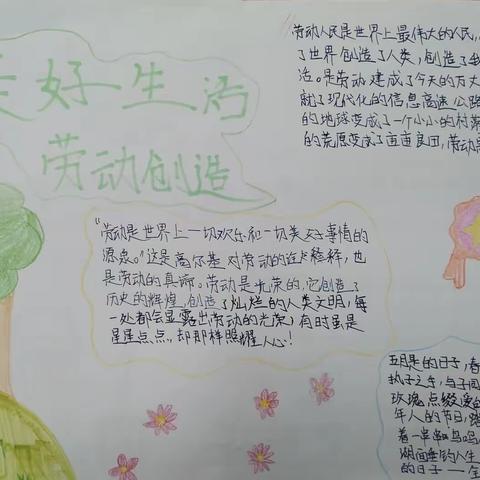 美好生活
劳动创造
劳动人民是世界上最伟大的人民,
了世界创造了人类,创造了我
活。是劳动建成了今天的万丈
就了现代化的信息高速公路
的地球变成了一个小小的村落
的荒原变成了亩亩良田,劳动
"劳动是世界上一切欢乐和一切美好事情的
源泉。"这是高尔基对劳动的注释,也
是劳动的真谛。劳动是光荣的,它创造了
历史的辉煌,创造了灿烂的人类文明,每
一处都会显露出劳动的光荣,有时虽是
星星点点,却那样照耀人心!
五月是的日子,春
执子之手,与子同
玫瑰点缀爱的
年人的节日,踏
着一串串鸟鸣
湖面垂钓人生
的日子——全